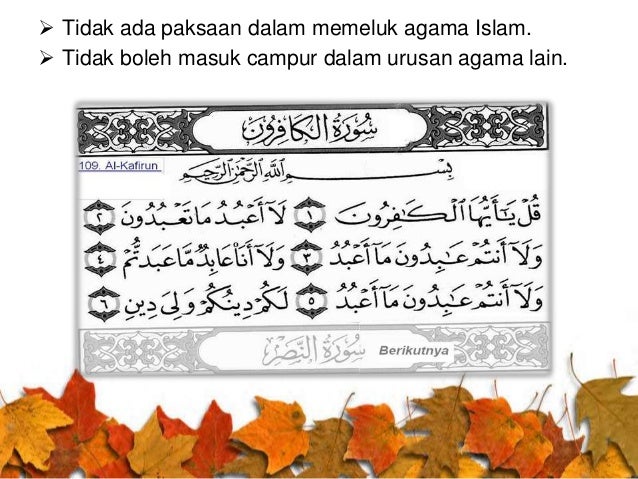 ➢ Tidak ada paksaan dalam memeluk agama Islam.
➢ Tidak boleh masuk campur dalam urusan agama lain.
سُورَةُ الكَافِرُونَ
109. Al-Kafirun
بِسْمِ اللَّهِ الرَّحْمَٰنِ الرَّحِيمِ
قُلْ يَٰٓأَيُّهَا ٱلْكَٰفِرُونَ ١ لَآ أَعْبُدُ مَا تَعْبُدُونَ ٢
وَلَآ أَنتُمْ عَٰبِدُونَ مَآ أَعْبُدُ ٣ وَلَآ أَنَا۠ عَابِدٌ مَّا عَبَدتُّمْ ٤
وَلَآ أَنتُمْ عَٰبِدُونَ مَآ أَعْبُدُ ٥ لَكُمْ دِينُكُمْ وَلِيَ دِينِ ٦
سُورَةُ النَّصْرِ
Berikutnya